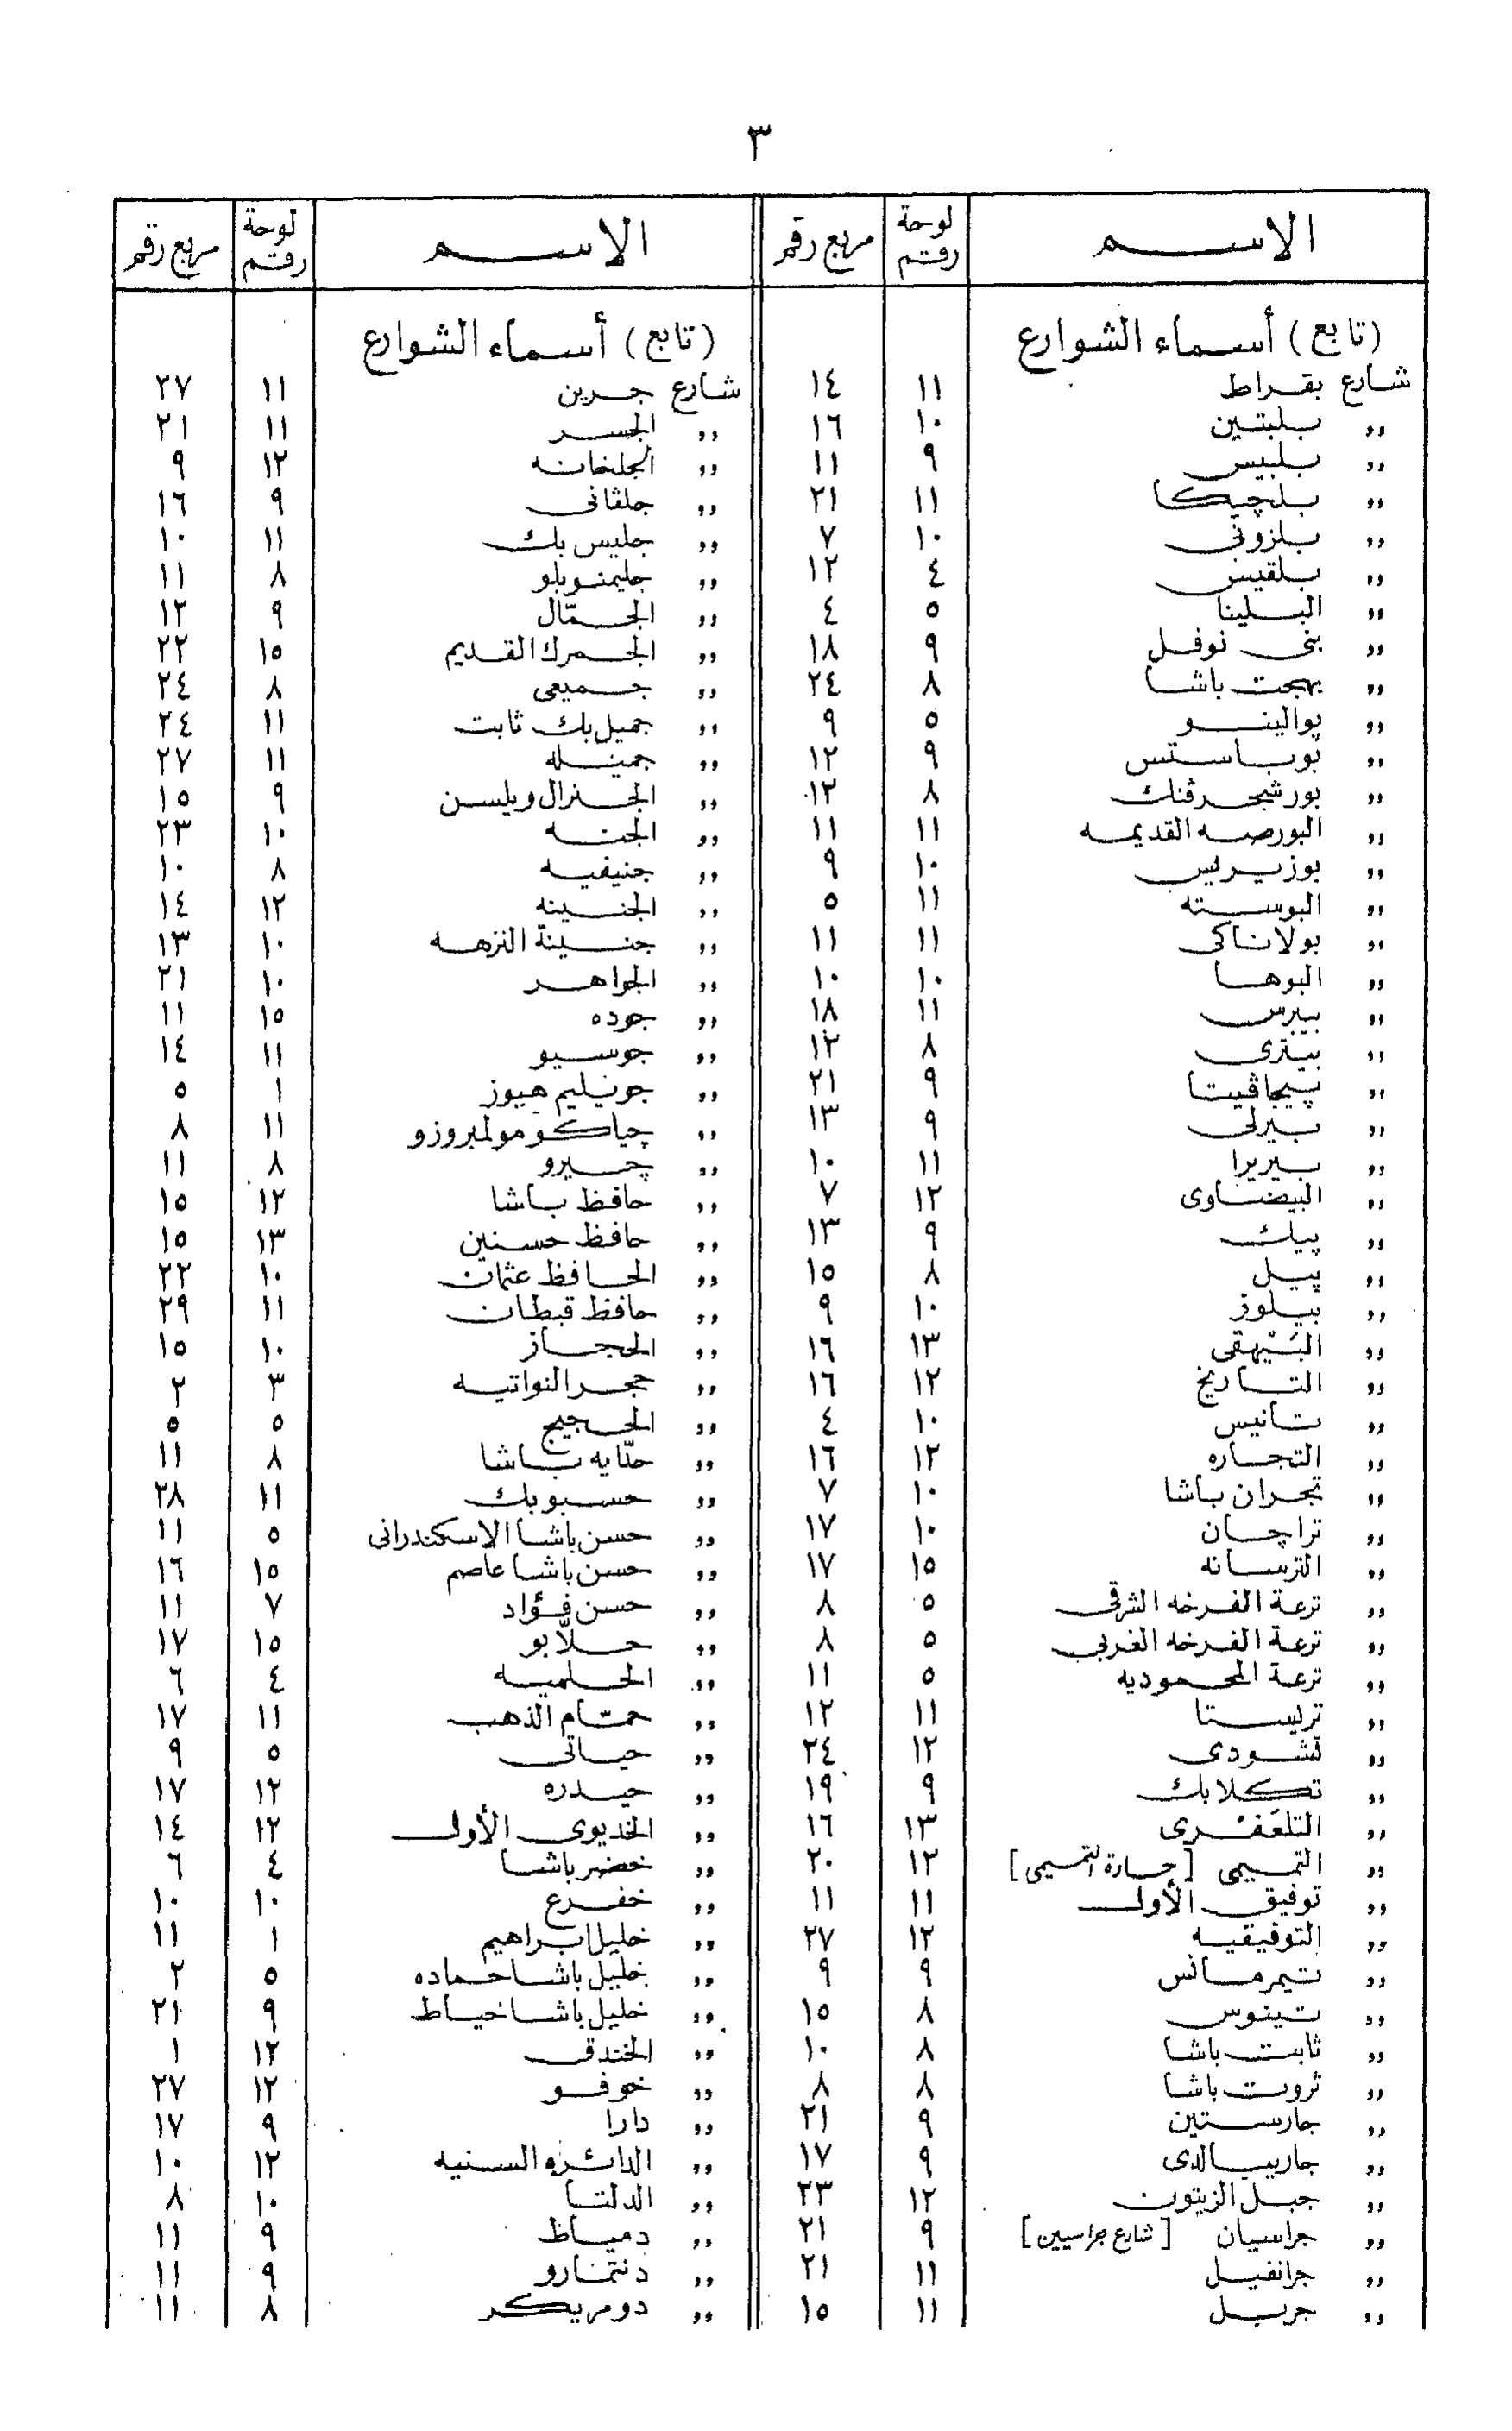 ٣
الاسم لوحة رقم مربع رقم
(تابع) أسماء الشوارع
شارع بقراط ١١ ١٤
,, بلبتين ١٠ ١٦
,, بلبيس ٩ ١١
,, بلچيكا ١١ ٢١
,, بلزونى ١٠ ٧
,, بلقيس ٤ ١٢
,, البلينا ٥ ٤
,, بنى نوفل ٩ ١٨
,, بهجت باشا ٨ ٢٤
,, بوالينو ٥ ٩
,, بوباستس ٩ ١٢
,, بورشجرڤنك ٨ ١٢
,, البورصه القديمه ١١ ١١
,, بوزيريس ١٠ ٩
,, البوسته ١١ ٥
,, بولاناكى ١١ ١١
,, البوها ١٠ ١٠
,, بيبرس ١١ ١٨
,, بيترى ٨ ١٢
,, پيجاڤيتا ٩ ٢١
,, بيرلى ٩ ١٣
,, بيريرا ١١ ١٠
,, البيضاوى ١٢ ٧
,, پيك ٩ ١٣
,, پيل ٨ ١٥
,, بيلوز ١٠ ٩
,, البَيْهقى ١٣ ١٦
,, التاريخ ١٢ ١٦
,, تانيس ١٠ ٤
,, التجاره ١٢ ١٦
,, تجران باشا ١٠ ٧
,, تراچان ١٠ ١٧
,, الترسانه ١٥ ١٧
,, ترعة الفرخه الشرقى ٥ ٨
,, ترعة الفرخه الغربى ٥ ٨
,, ترعة المحموديه ٥ ١١
,, تريستا ١١ ١٢
,, تشودى ١٢ ٢٤
,, تكلا بك ٩ ١٩
,, التلعَفْرى ١٣ ١٦
,, التميمى [حارة التميمى] ١٢ ٢٠
,, توفيق الأول ١١ ١١
,, التوفيقيه ١٢ ٢٧
,, تيمرمانس ٩ ٩
,, تينوس ٨ ١٥
,, ثابت باشا ٨ ١٠
,, ثروت باشا ٨ ٨
,, جارستين ٩ ٢١
,, جاريبالدى ٩ ١٧
,, جبل الزيتون ١٢ ٢٣
,, جراسيان [شارع جراسيين] ٩ ٢١
,, جرانفيل ١١ ٢١
,, جربل ١١ ١٥
الاسم لوحة رقم مربع رقم
(تابع) أسماء الشوارع
شارع جرين ١١ ٢٧
,, الجسر ١١ ٢١
,, الجلخانه ١٢ ٩
,, جلڤانى ٩ ١٦
,, جليس بك ١١ ١٠
,, جليمنوبلو ٨ ١١
,, الجمّال ٩ ١٢
,, الجمرك القديم ١٥ ٢٢
,, جميعى ٨ ٢٤
,, جميل بك ثابت ١١ ٢٤
,, جميله ١١ ٢٧
,, الجنرال ويلسن ٩ ١٥
,, الجنه ١٠ ٢٣
,, جنيفيه ٨ ١٠
,, الجنينه ١٢ ١٤
,, جنينة النزهه ١٠ ١٣
,, الجواهر ١٠ ٢١
,, جوده ١٥ ١١
,, جوسيو ١١ ١٤
,, جويليم هيوز ١ ٥
,, چياكومو لمبروزو ١١ ٨
,, چيرو ٨ ١١
,, حافظ باشا ١٢ ١٥
,, حافظ حسنين ١٣ ١٥
,, الحافظ عثمان ١٠ ٢٢
,, حافظ قبطان ١١ ٢٩
,, الحجاز ١٠ ١٥
,, حجر النواتيه ٣ ٢
,, الحجيج ٥ ٥
,, حتّايه باشا ٨ ١١
,, حسبو بك ١١ ٢٨
,, حسن باشا الاسكندرانى ٥ ١١
,, حسن باشا عاصم ١٥ ١٦
,, حسن فؤاد ٧ ١١
,, حلاّبو ١٥ ١٧
,, الحلميه ٤ ٦
,, حمّام الذهب ١١ ١٧
,, حياتى ٥ ٩
,, حيدره ١٢ ١٧
,, الخديوى الأول ١٢ ١٤
,, خضير باشا ٤ ٦
,, خفرع ١٠ ١٠
,, خليل ابراهيم ١ ١١
,, خليل باشا حماده ٥ ٢
,, خليل باشا خياط ٩ ٢١
,, الخندق ١٢ ١
,, خوفو ١٢ ٢٧
,, دارا ٩ ١٧
,, الدائره السنيه ١٢ ١٠
,, الدلتا ١٠ ٨
,, دمياط ٩ ١١
,, دنتمارو ٩ ١١
,, دومريكر ٨ ١١